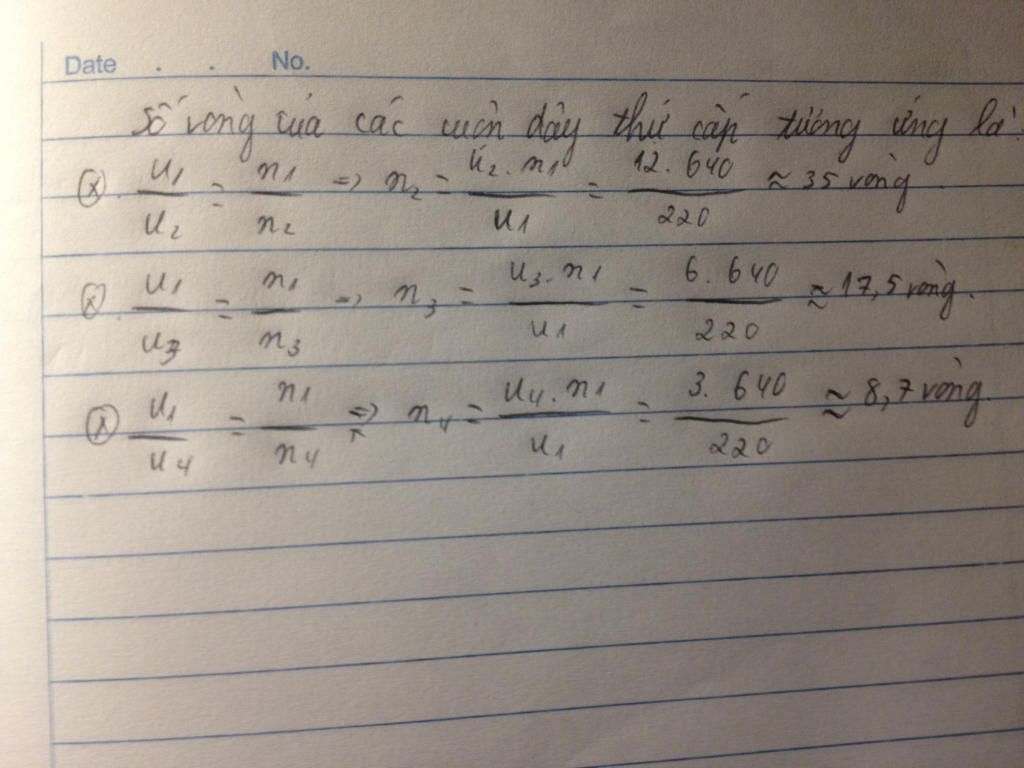 Date . . No.
Số vòng của các cuộn dây thứ cấp tương ứng là:
(x). u1/u2 = n1/n2 => n2 = u2.n1/u1 = 12.640/220 ≈ 35 vòng.
(x). u1/u3 = n1/n3 => n3 = u3.n1/u1 = 6.640/220 ≈ 17,5 vòng.
(x) u1/u4 = n1/n4 => n4 = u4.n1/u1 = 3.640/220 ≈ 8,7 vòng.